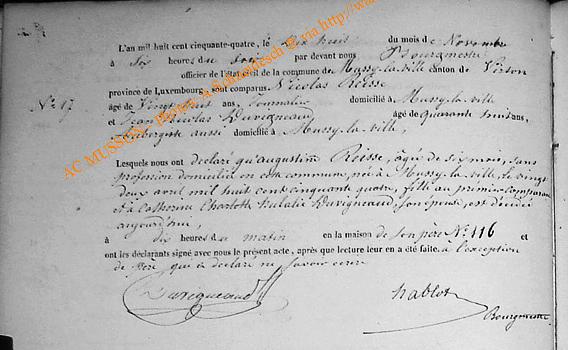 L'an mil huit cent cinquante-quatre, le dix huit du mois de Novembre
à six heures du soir par devant nous Bourgmestre
officier de l'état civil de la commune de Mussy-la-ville canton de Virton
province de Luxembourg, sont comparus Nicolas Reisse
N° 17
âgé de Vingt huit ans, Journalier domicilié à Mussy-la-ville
et Jean Nicolas Duvigneaud âgé de quarante huit ans,
aubergiste aussi domicilié à Mussy-la-ville,
Lesquels nous ont déclaré qu'augustin Reisse, âgé de six mois, sans
profession domicilié en cette commune, né à Mussy-la-ville, le vingt
deux avril mil huit cent cinquante quatre, fils au premier comparant
et à Catherine Charlotte Eulalie Duvigneaud, son épouse, est décédé
aujourd'hui,
à dix heures du matin en la maison de son père N° 116 et
ont les déclarants signé avec nous le présent acte, après que lecture leur en a été faite. à l'exception
du père qui a déclaré ne savoir écrire
Duvigneaud
hablot
Bourgmestre
AC MUSSON, photos A. Schmidesch @ via http://wa